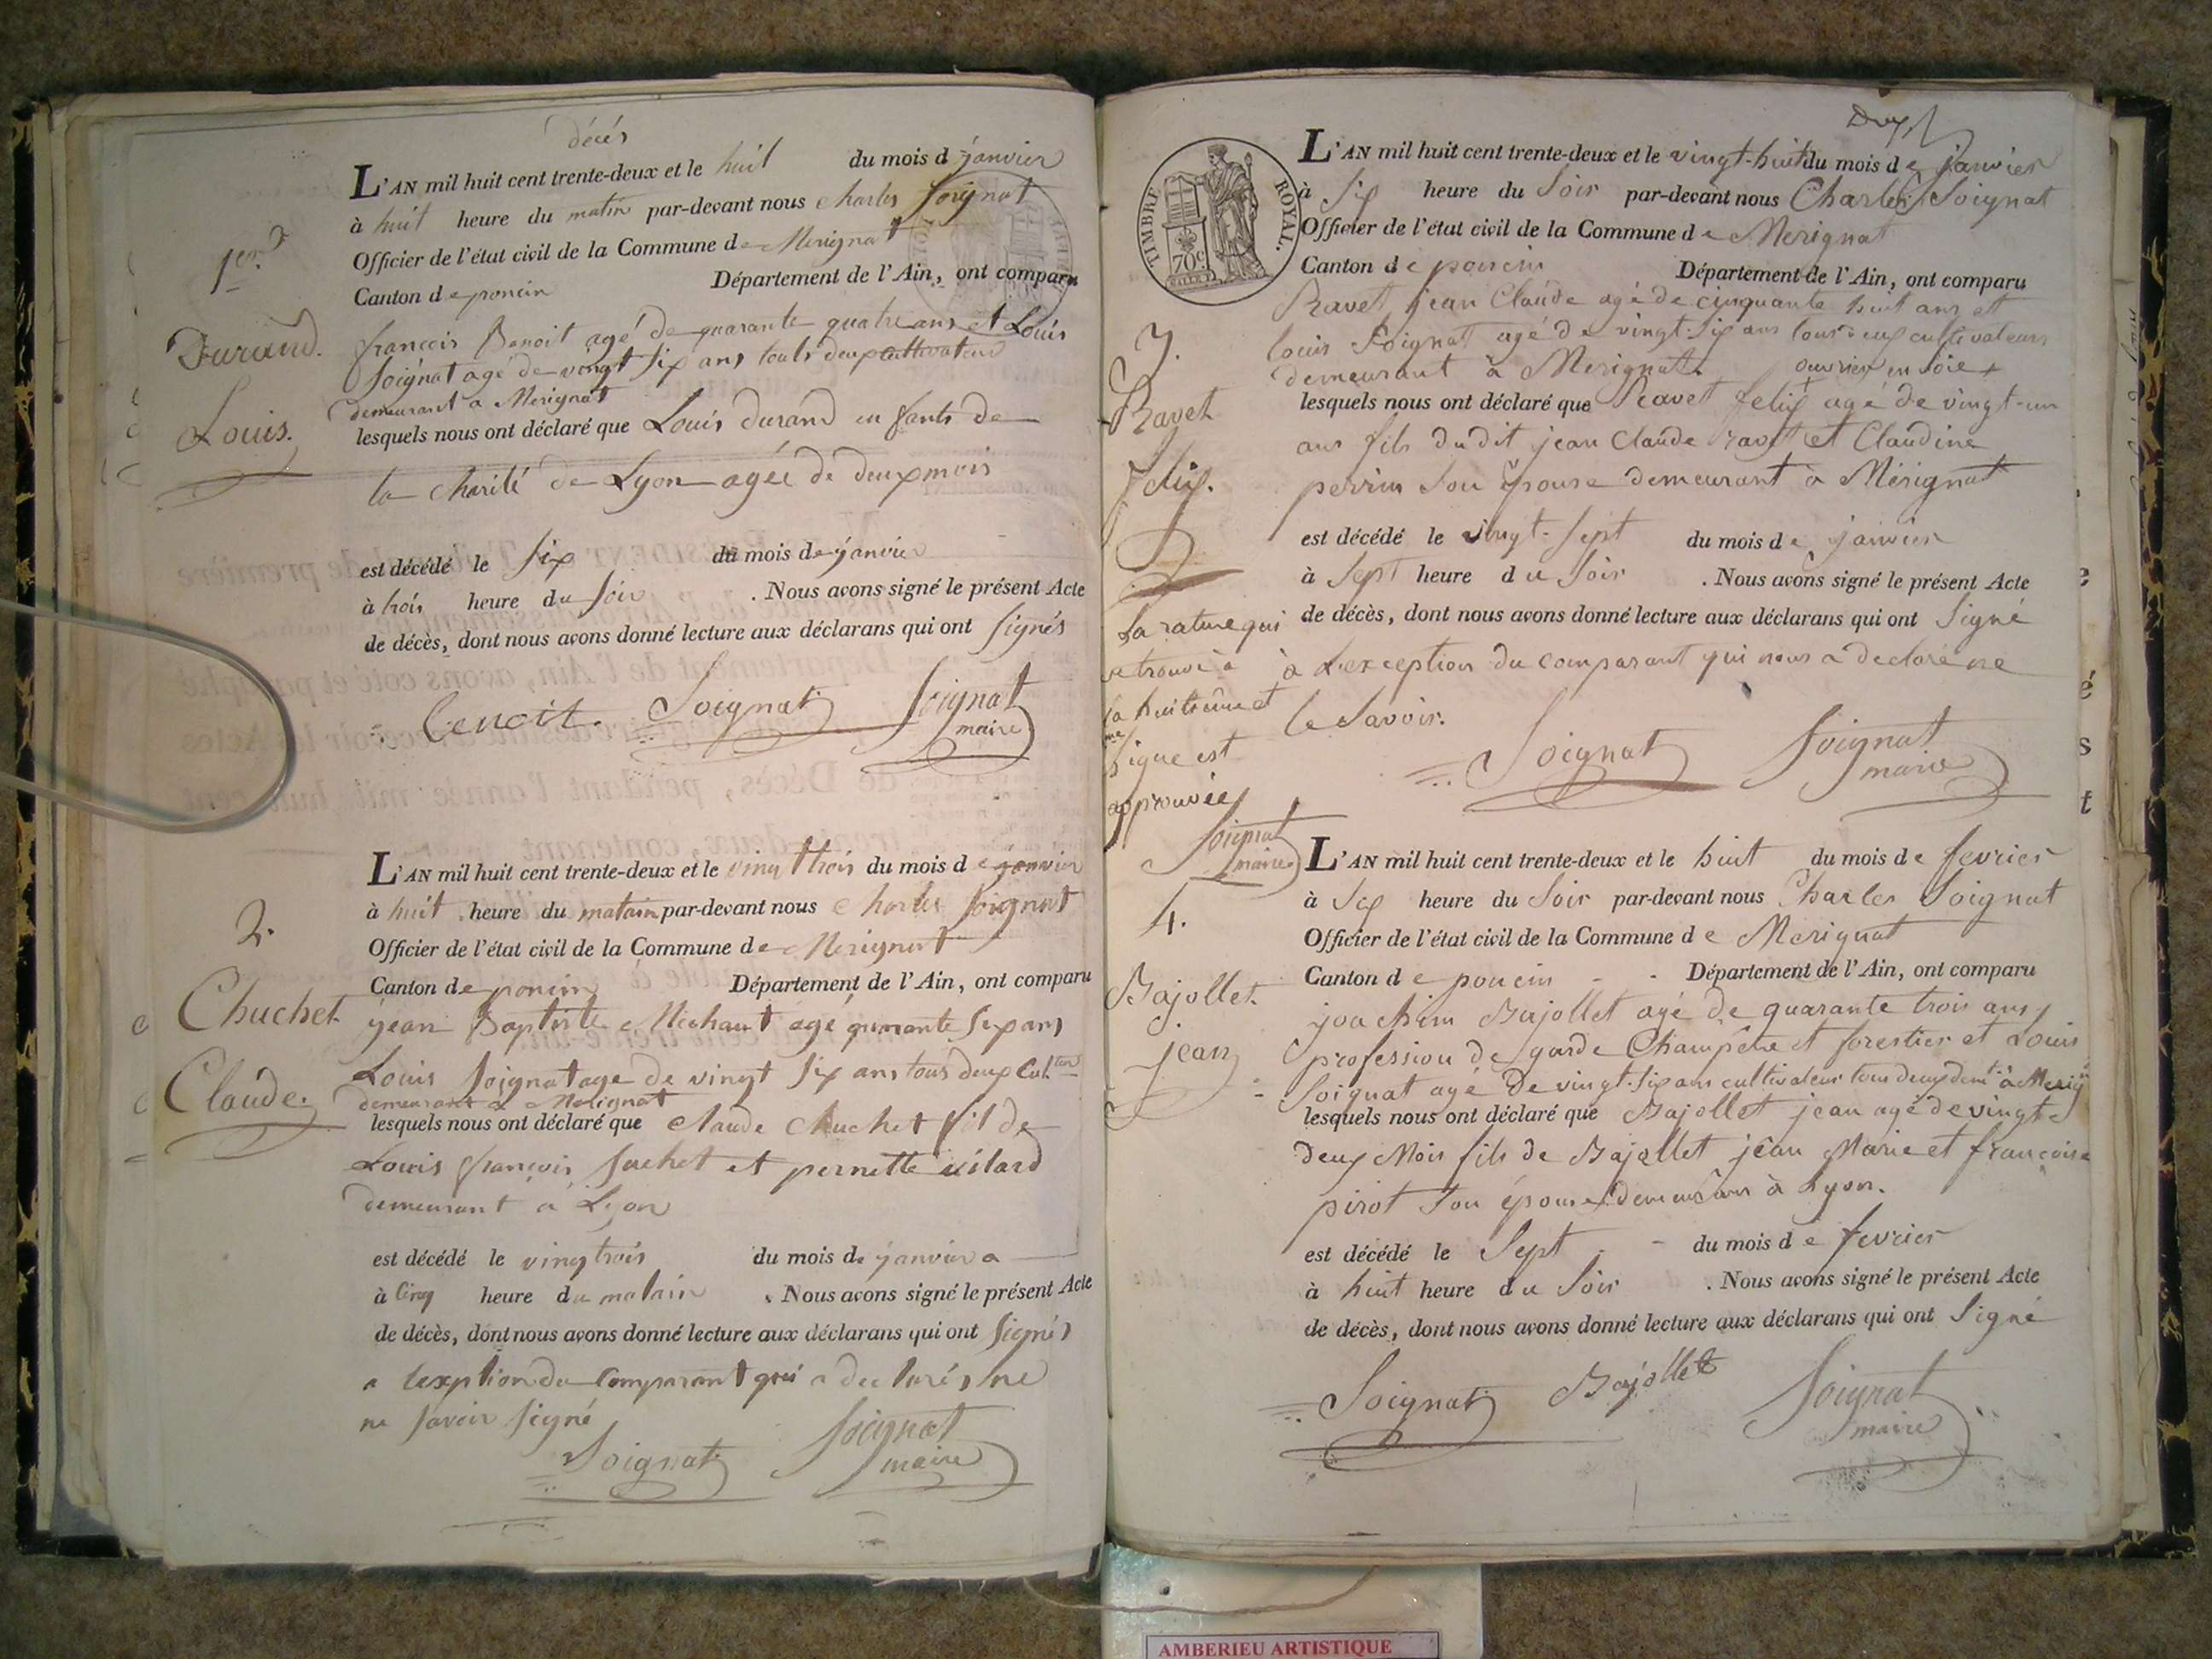 décés
L'AN mil huit cent trente-deux et le huit du mois d janvier
à huit heure du matin par-devant nous charles Soignat
Officier de l'état civil de la Commune de Merignat
Canton de poncin Département de l'Ain, ont comparu
françois Benoit agé de quarante quatre ans et Louis
Soignat agé de vingt six ans touts deux cultivateur
demeurant a Merignat
lesquels nous ont déclaré que Louis durand enfants de
la charité de Lyon agée de deux mois
est décédé le six du mois de janvier
à trois heure du soir . Nous avons signé le présent Acte
de décès, dont nous avons donné lecture aux déclarans qui ont signés
benoit. Soignat Soignat
maire
1er
Durand.
Louis.
L'AN mil huit cent trente-deux et le vingt trois du mois de janvier
à huit heure du matain par-devant nous charles Soignat
Officier de l'état civil de la Commune de Merignat
Canton de poncin Département de l'Ain, ont comparu
jean Baptiste Mechaut agé quarante six ans
Louis Soignat age de vingt six ans tous deux Cult.teur
demeurant a Merignat
lesquels nous ont déclaré que claude chuchet fil de
Louis françois juchet et pernette vilard
demeurant a Lyon
est décédé le vingtrois du mois de janvier a
à Cinq heure du matain . Nous avons signé le présent Acte
de décès, dont nous avons donné lecture aux déclarans qui ont signés
a lexption du Comparant qui a declarés ne
ne savoir signé
Soignat Soignat
maire
2.
Chuchet
Claude.
L'AN mil huit cent trente-deux et le vingt-huit du mois de janvier
à six heure du soir par-devant nous Charles Soignat
Officier de l'état civil de la Commune de Merignat
Canton de poncin Département de l'Ain, ont comparu
Ravet jean Claude agé de cinquante huit ans et
louis Soignat agé de vingt-six ans tous deux cultivateurs
demeurant à Merignat. ouvrier en soie +
lesquels nous ont déclaré que Ravet felix agé de vingt-un
ans fils dudit jean Claude ravet et Claudine
perrin son épouse demeurant à Mérignat
est décédé le vingt-sept du mois de janvier
à sept heure du soir . Nous avons signé le présent Acte
de décès, dont nous avons donné lecture aux déclarans qui ont signé
à l'exception du comparant qui nous a declaré ne
le savoir.
Soignat Soignat
maire
TIMBRE ROYAL.
70c
3.
Ravet
felix.
La rature qui
se trouve à
la huitième
ligne est
approuvée
Soignat
maire
L'AN mil huit cent trente-deux et le huit du mois de fevrier
à six heure du soir par-devant nous Charles Soignat
Officier de l'état civil de la Commune de Merignat
Canton de poncin Département de l'Ain, ont comparu
joachim Bajollet agé de quarante trois ans,
profession de garde Champêtre et forestier et Louis
Soignat agé de vingt-six ans cultivateur tous deux demt à Merign
lesquels nous ont déclaré que Bajollet jean agé de vingt
deux Mois fils de Bajollet jean Marie et françoise
pirot son épouse demeurans à Lyon.
est décédé le sept du mois de fevrier
à huit heure du soir . Nous avons signé le présent Acte
de décès, dont nous avons donné lecture aux déclarans qui ont signé
Soignat Bajollet Soignat
maire
4.
Bajollet
jean
AMBERIEU ARTISTIQUE